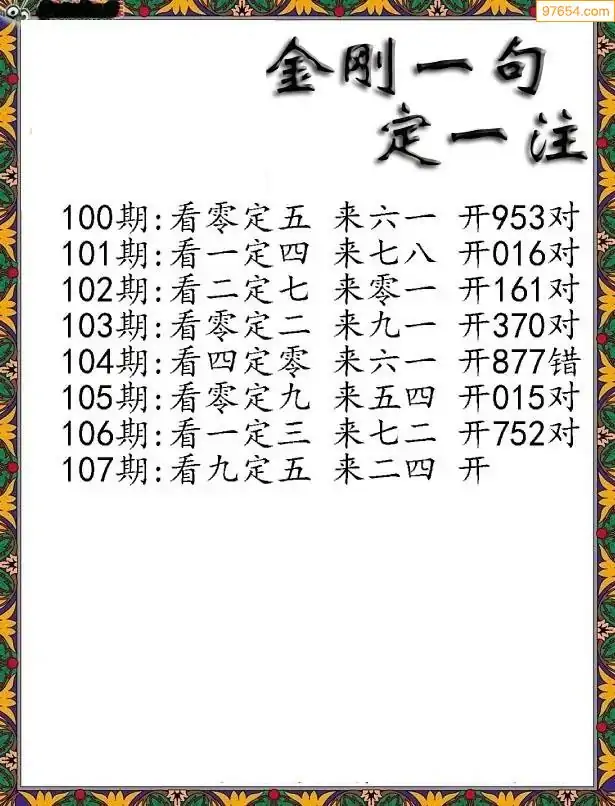 97654.com
金刚一句
定一注
100期:看零定五 来六一 开953对
101期:看一定四 来七八 开016对
102期:看二定七 来零一 开161对
103期:看零定二 来九一 开370对
104期:看四定零 来六一 开877错
105期:看零定九 来五四 开015对
106期:看一定三 来七二 开752对
107期:看九定五 来二四 开